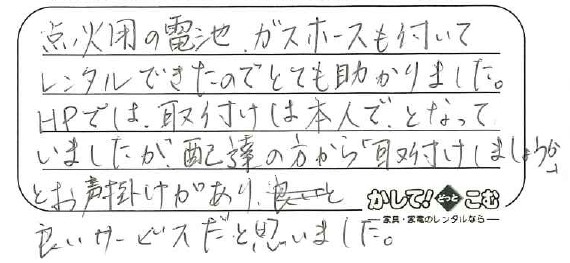 点火用の電池、ガスホースも付いて
レンタルできたのでとても助かりました。
HPでは、取付けは本人で、となって
いましたが、配達の方から「取付けしましょうか」
とお声掛けがあり、良いと
かして!どっとこむ
家具・家電のレンタルなら
良いサービスだと思いました。